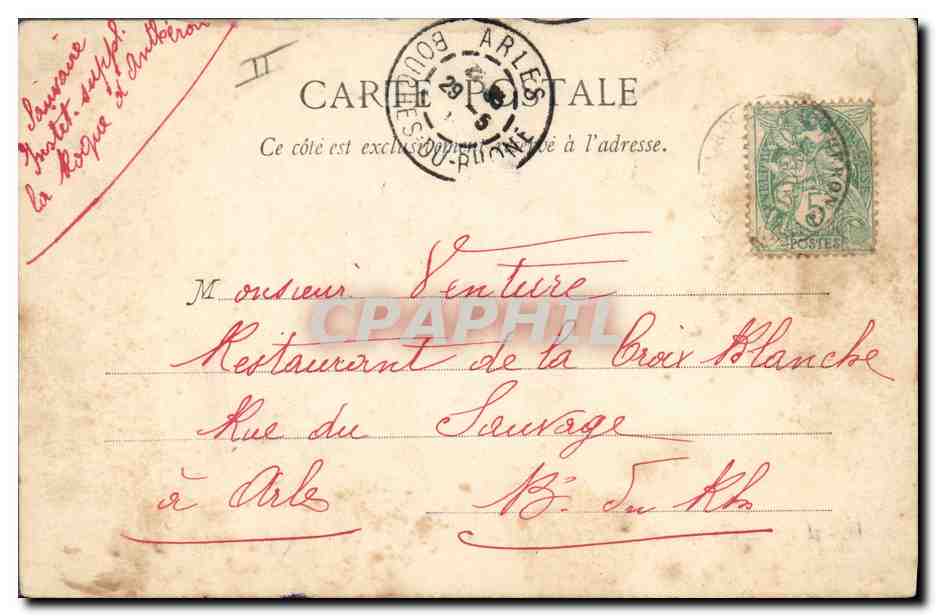 Sauvaire
Instet. suppl.
la Roque d'Anthéron
II
ARLES
BOUCHES-DU-RHONE
29
5
CARTE POSTALE
Ce côté est exclusivement réservé à l'adresse.
5
POSTES
Monsieur Venture
CPAPHIL
Restaurant de la Croix Blanche
Rue du Sauvage
à Arles B. du Rh